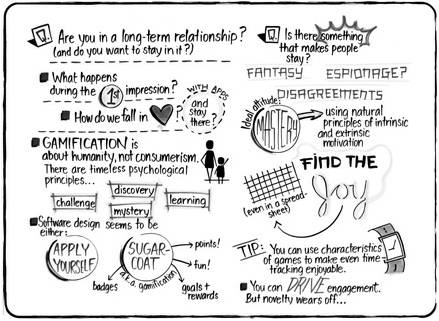 Q. Are you in a long-term relationship?
(and do you want to stay in it?)
What happens
during the 1st impression?
How do we fall in ?
WITH APPS
and
stay
there?
GAMIFICATION is
about humanity, not consumerism.
There are timeless psychological
principles...
discovery
challenge
learning
mystery
Software design seems to be
either:
APPLY
YOURSELF
SUGAR-
COAT
points!
fun!
goals +
rewards
a.k.a. gamification
badges
Q. Is there something
that makes people
stay?
FANTASY ESPIONAGE?
DISAGREEMENTS
Ideal attitude:
MASTERY
using natural
principles of intrinsic
and extrinsic
motivation
FIND THE
Joy
(even in a spread-
sheet)
TIP: You can use characteristics
of games to make even time
tracking enjoyable.
You can DRIVE engagement.
But novelty wears off...